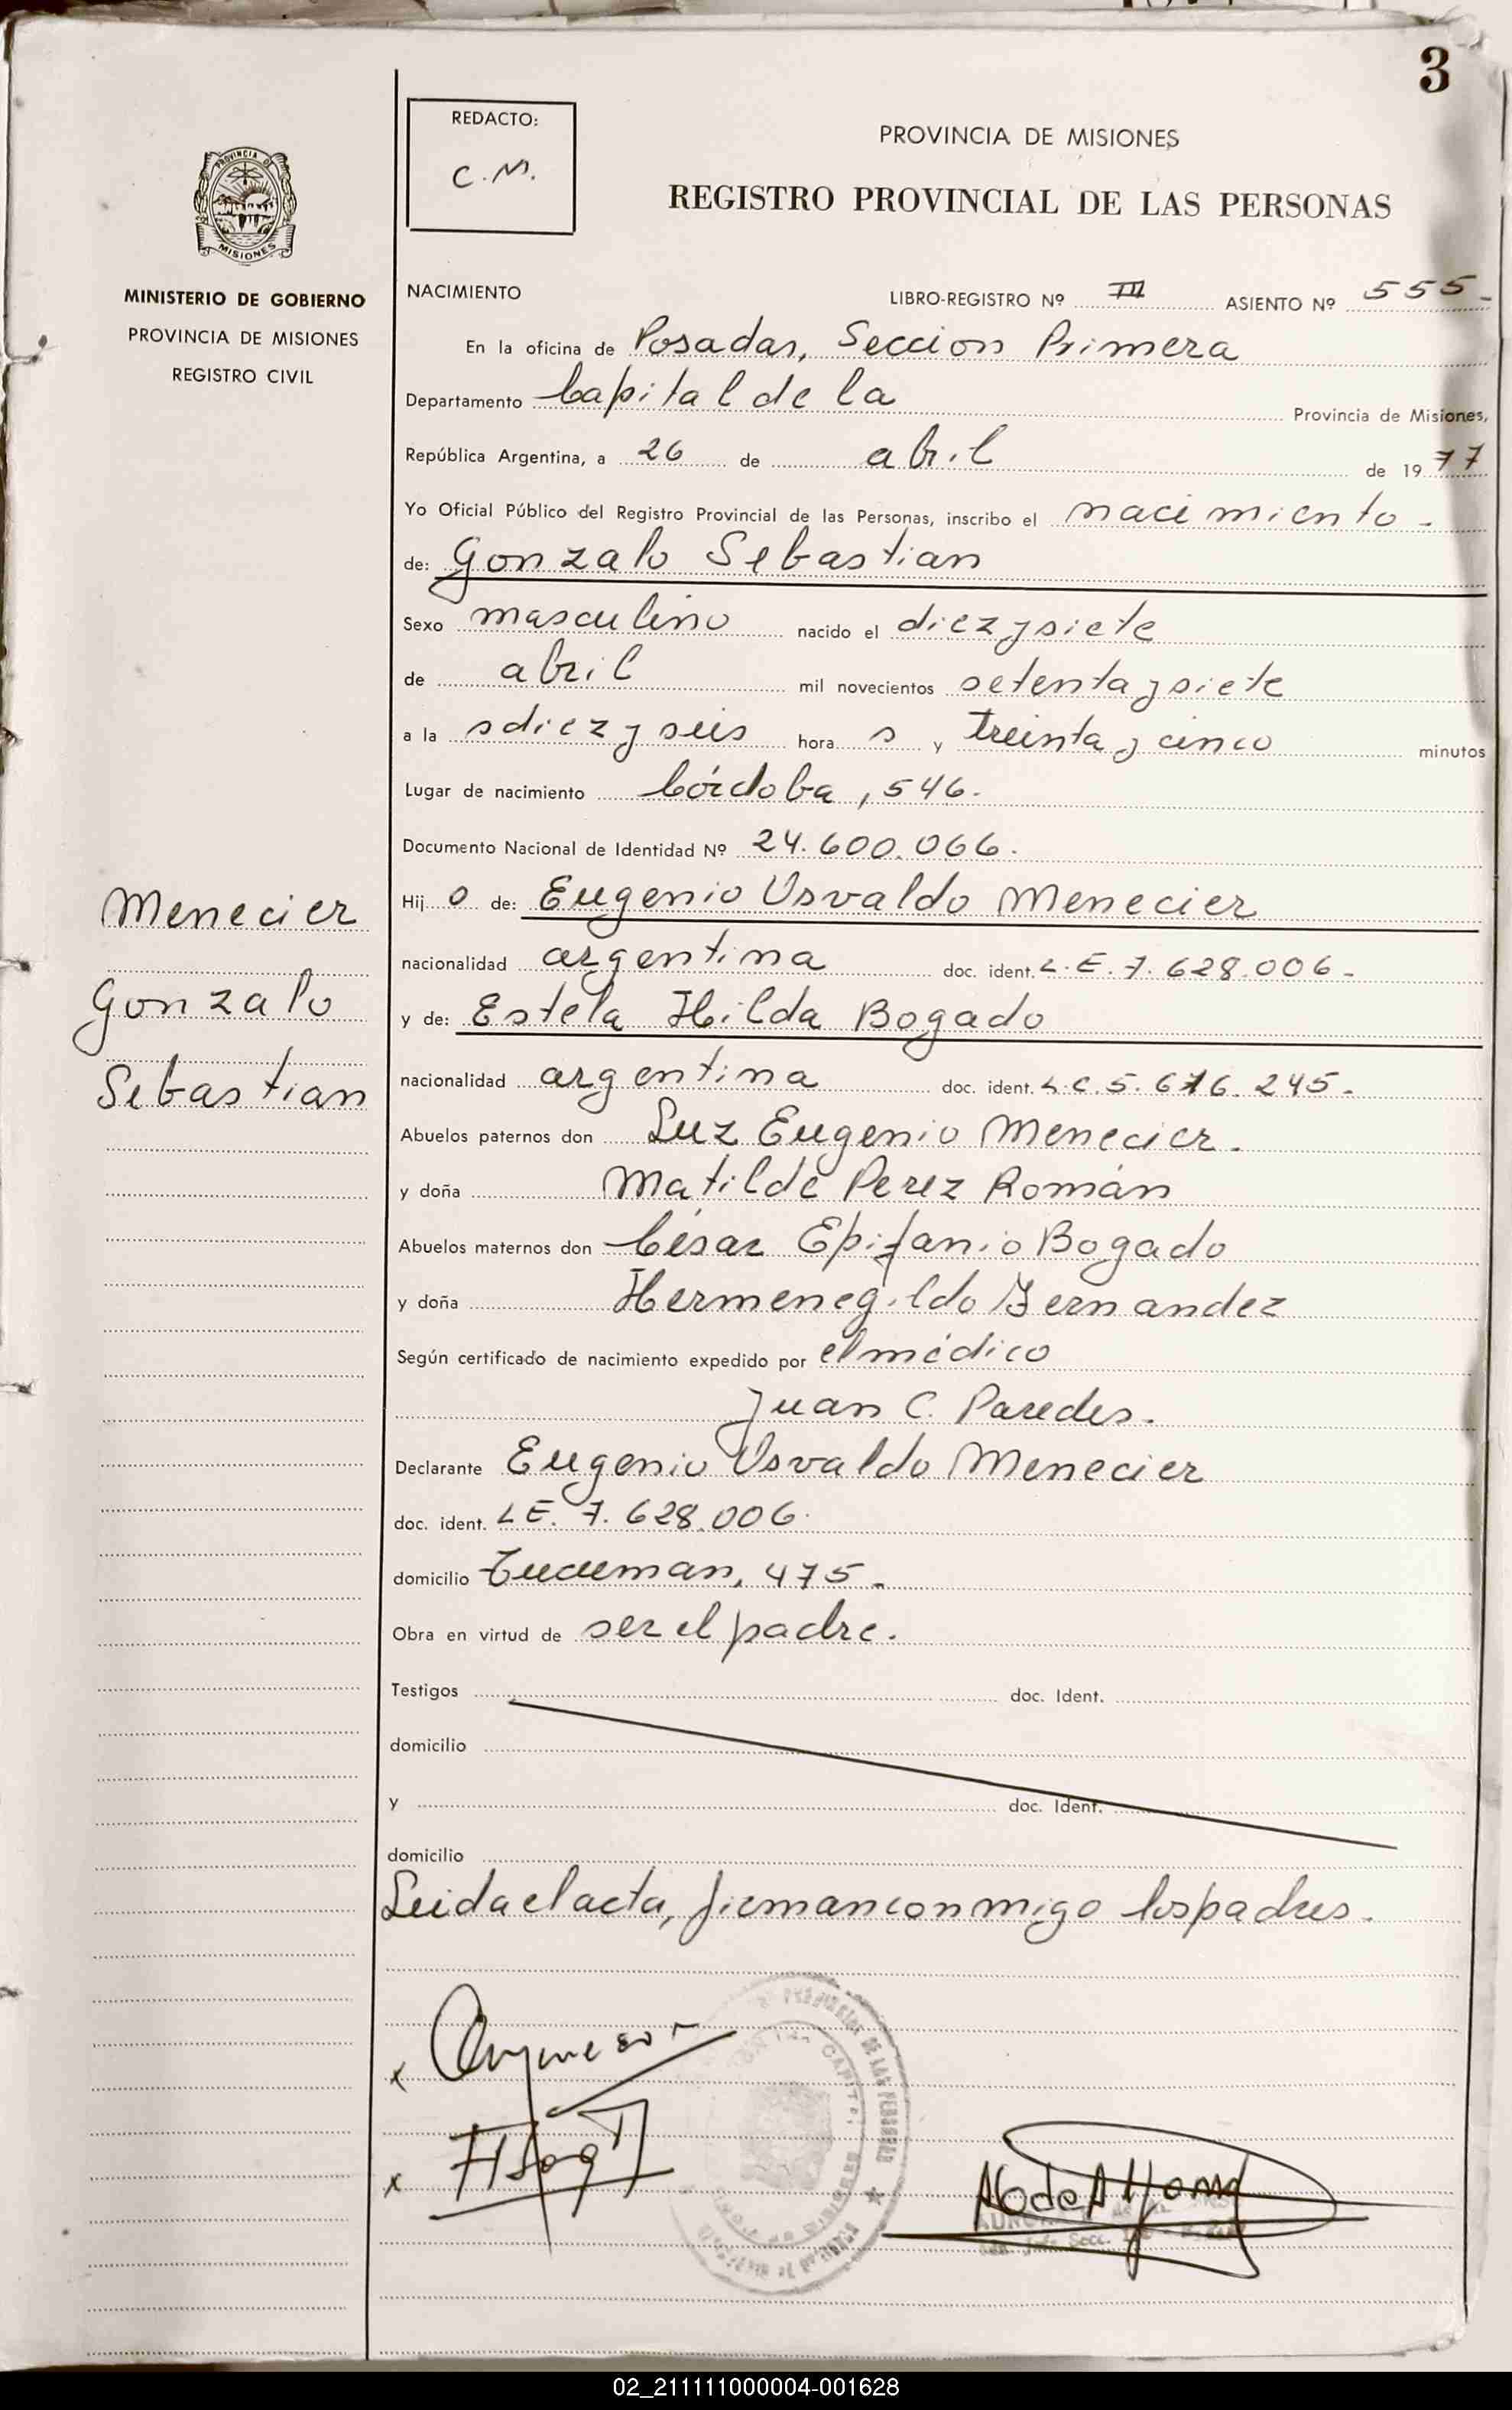 3
REDACTO:
C.M.
PROVINCIA DE MISIONES
REGISTRO PROVINCIAL DE LAS PERSONAS
PROVINCIA DE
MISIONES
MINISTERIO DE GOBIERNO
PROVINCIA DE MISIONES
REGISTRO CIVIL
NACIMIENTO LIBRO-REGISTRO Nº III ASIENTO Nº 555-
En la oficina de Posadas, Seccion Primera
Departamento Capital de la Provincia de Misiones,
República Argentina, a 26 de abril de 1977
Yo Oficial Público del Registro Provincial de las Personas, inscribo el nacimiento-
de: Gonzalo Sebastian
Sexo masculino nacido el diez y siete
de abril mil novecientos setenta y siete
a la s diez y seis hora s y treinta y cinco minutos
Lugar de nacimiento Córdoba, 546.
Documento Nacional de Identidad Nº 24.600.066.
Hij o de: Eugenio Osvaldo Menecier
nacionalidad argentina doc. ident. L.E. 7.628.006-
y de: Estela Hilda Bogado
nacionalidad argentina doc. ident. L.C. 5.616.245-
Abuelos paternos don Luz Eugenio Menecier.
y doña Matilde Perez Román
Abuelos maternos don César Epifanio Bogado
y doña Hermenegildo Fernandez
Según certificado de nacimiento expedido por el médico
Juan C. Paredes.
Declarante Eugenio Osvaldo Menecier
doc. ident. LE. 7.628.006.
domicilio Tucuman, 475-
Obra en virtud de ser el padre.
Testigos doc. Ident.
domicilio
y doc. Ident.
domicilio
Leida el acta, firman conmigo los padres.
Menecier
Gonzalo
Sebastian
x
x
02_211111000004-001628